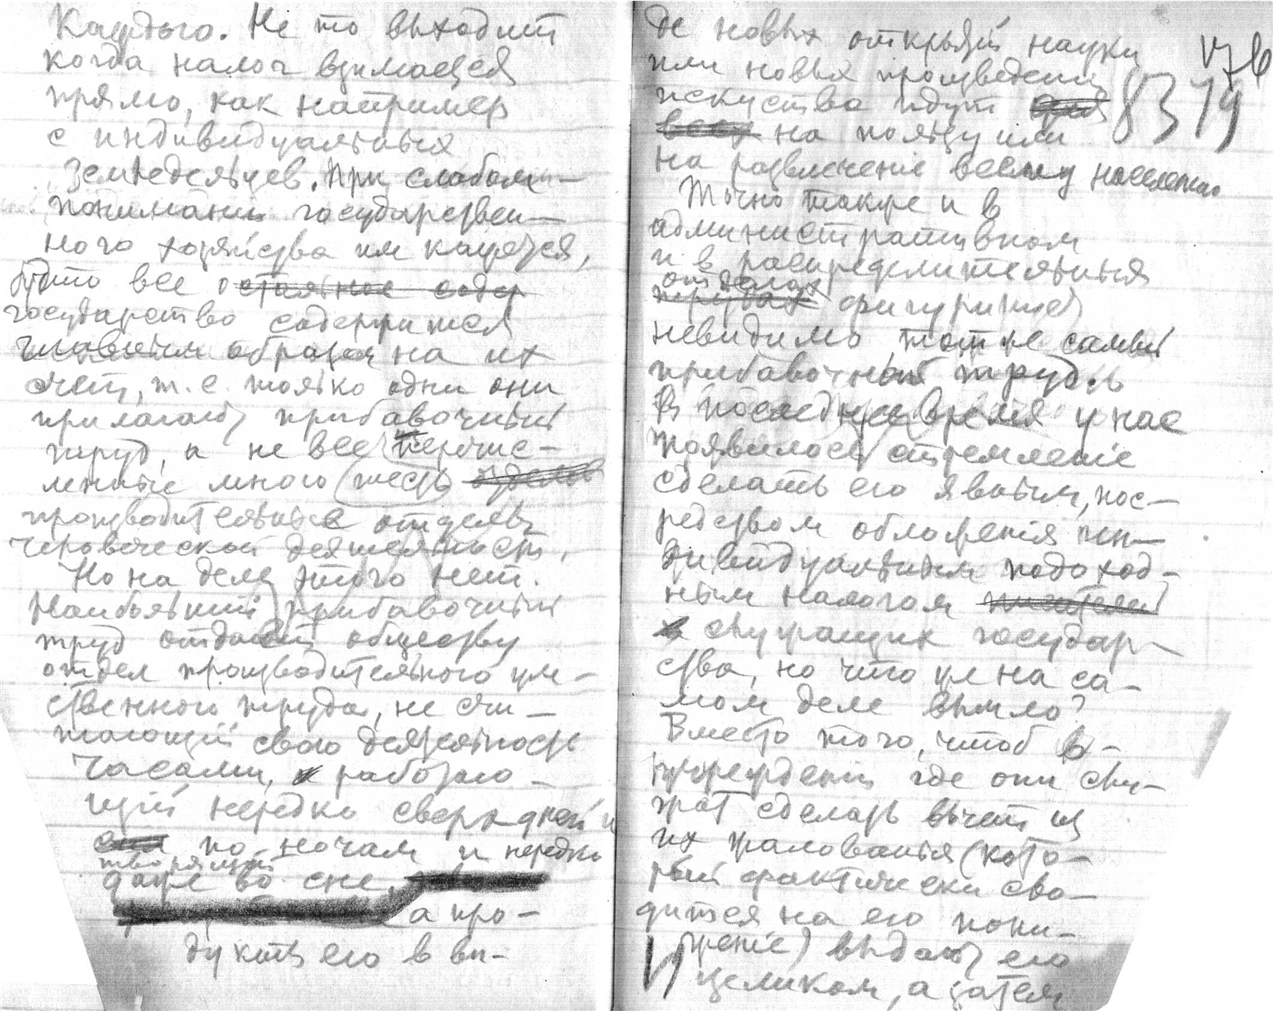 Каждого. Не то выходит
когда налог взимается
прямо, как например
с индивидуальных
земледельцев. При слабом
понимании государствен-
ного хозяйства им кажется,
будто все остальное содер
государство содержится
главным образом на их
счет, т.е. только одни они
прилагают прибавочный
труд, а не все перечис-
ленные много (шесть отделов
производительных отделы
человеческой деятельности.
Но на деле этого нет.
Наибольший прибавочный
труд отдает обществу
отдел производительного ум-
ственного труда, не счи-
тающий свою деятельность
часами, и работаю-
щий нередко сверх дней и
по ночам и нередко
творящий
даже во сне,
а про-
дукты его в ви-
де новых открытий науки
или новых произведений
искусства идут для
всех на пользу или
на развлечение всему населению
Точно также и в
административном
и в распределительных
отделах
трудах фигурирует
невидимо тот же самый
прибавочный труд.
В последнее время у нас
появилось стремление
сделать его явным, пос-
редством обложения ин-
дивидуальным подоход-
ным налогом
служащих государ-
ства, но что же на са-
мом деле вышло?
Вместо того, чтоб в
учреждении где они слу-
жат сделать вычет из
их жалованья (кото-
рый фактически сво-
дится на его пони-
жение) выдают его
целиком, а затем
176
8319